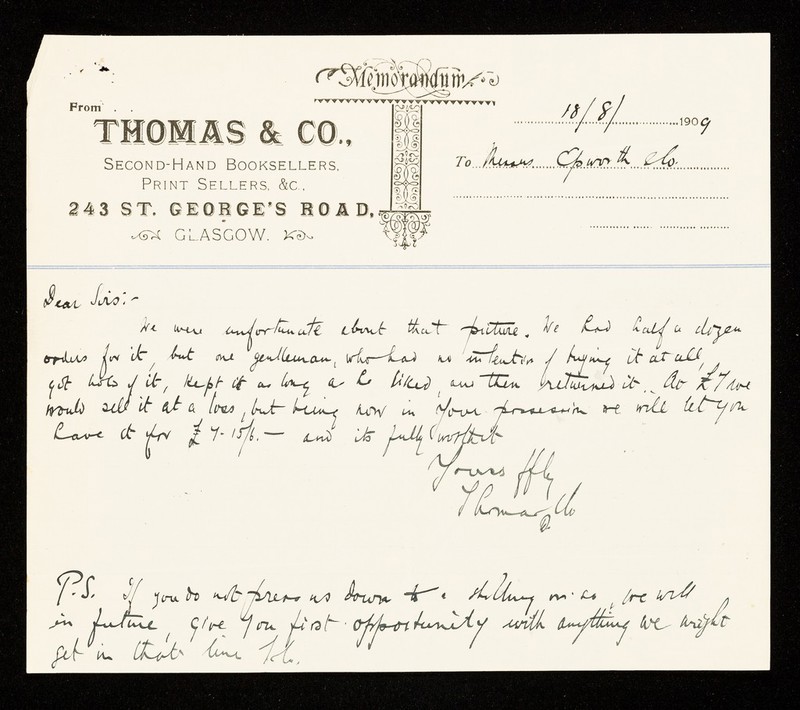 Memorandum
From
THOMAS & CO.,
SECOND-HAND BOOKSELLERS,
PRINT SELLERS, &C.,
243 ST. GEORGE'S ROAD,
GLASGOW.
18/8/1909
To Messrs Epworth & Co.
Dear Sirs:-
We were unfortunate about that picture. We had half a dozen
orders for it, but one gentleman, who had no intention of buying it at all,
got hold of it, kept it as long as he liked, and then returned it. At £7 we
would sell it at a loss, but being now in your possession we will let you
have it for £7-15/6.— and its fully worth it
Yours ffly
Thomas & Co
P.S. If you do not press us down to a shilling or so, we will
in future, give you first opportunity with anything we might
get in that line